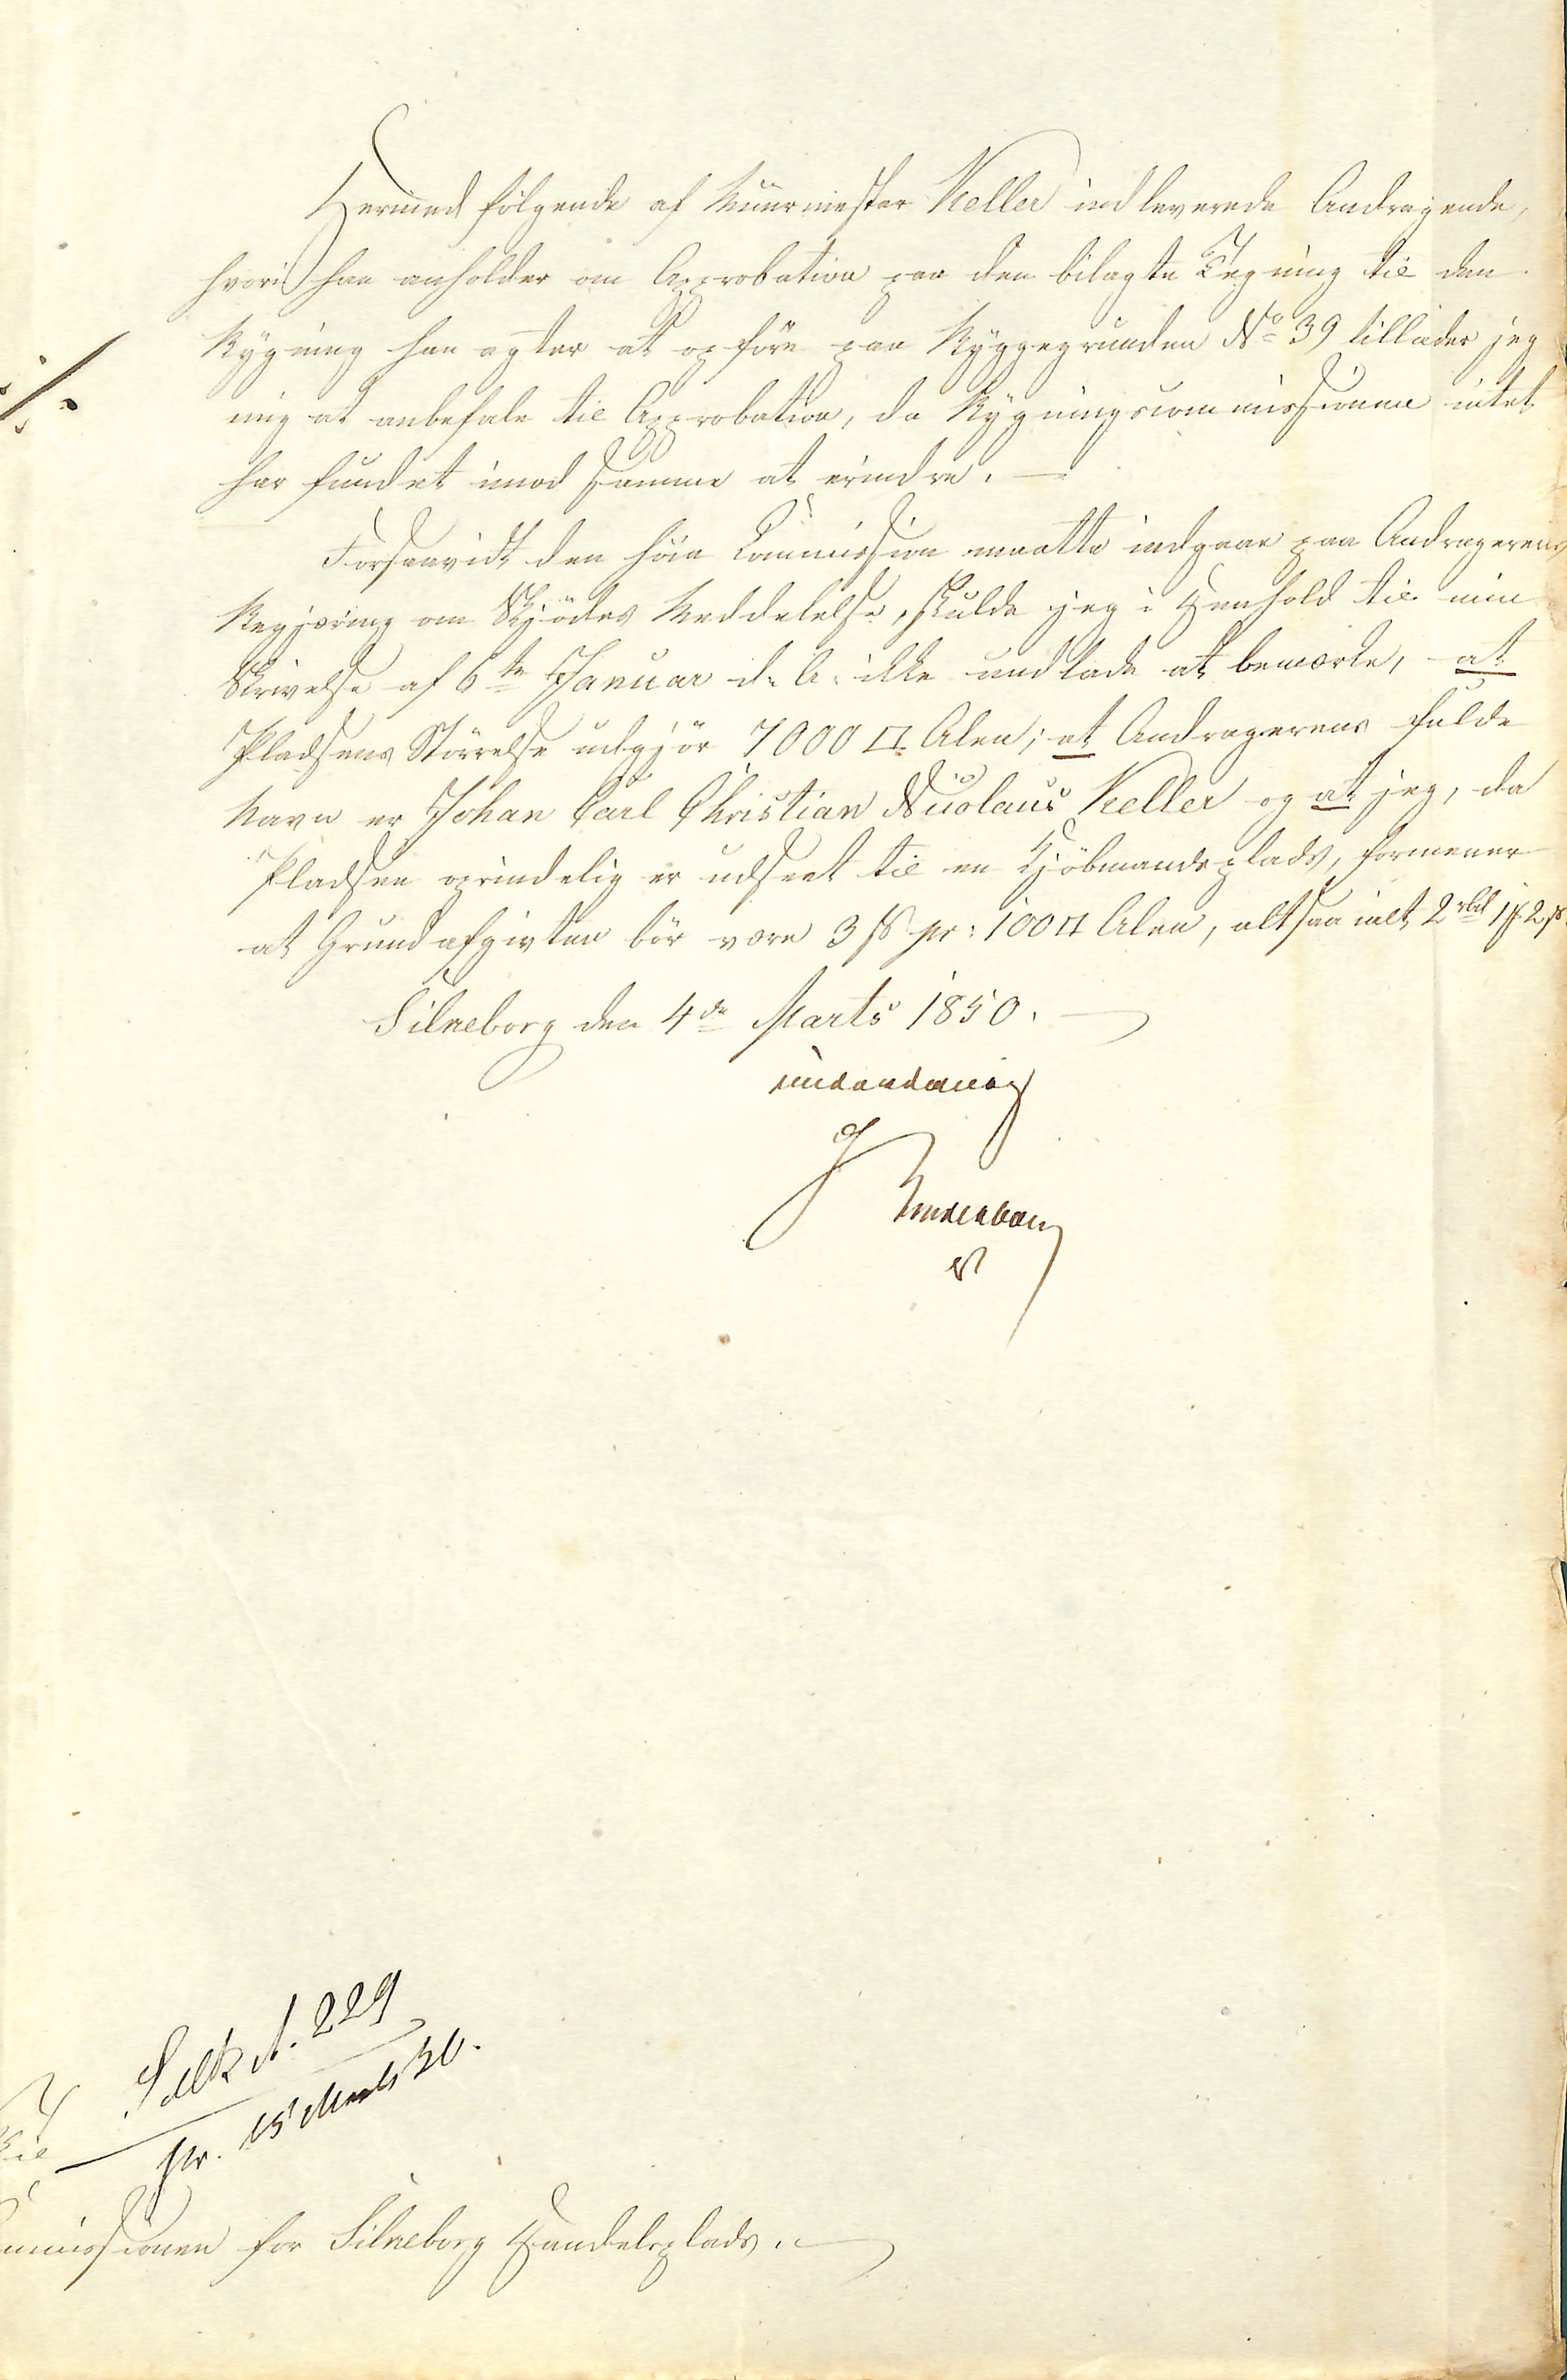 Hermed følgende af Muurmester Keller indleverede Andragende,
hvori han anholder om Approbation paa den bilagte Tegning til den
Bygning han agter at opföre paa Byggegrunden No 39 tillader jeg
mig at anbefale til Approbation, da Bygningscommissionen intet
har fundet imod samme at erindre. —
Forsaavidt den höie Commission maatte indgaae paa Andragerens
Begjæring om Skjödes Meddelelse, skulde jeg i Henhold til min
Skrivelse af 6te Januar d. A. ikke undlade at bemærke, at
Pladsens Störrelse udgjör 7000 □ Alen; at Andragerens fulde
Navn er Johan Carl Christian Nicolaus Keller og at jeg, da
Pladsen oprindelig er udseet til en Kjöbmandsplads, formener
at Grundafgivten bör være 3 ß pr: 100 □ Alen, altsaa ialt 2 rbd 1 ¥ 2 ß.
Silkeborg den 4de Marts 1850. —
underdanigst
Silk N. 229
pr. 15 Marts 50.
Til
mmissionen for Silkeborg Handelsplads. —